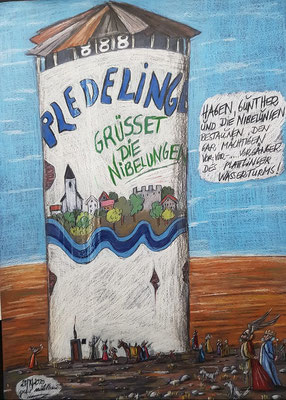 PLEDELING
GRÜSSET
DIE
NIBELUNGEN
HAGEN, GÜNTHER
UND DIE NIBELUNGEN
BESTAUNEN DEN
GAR MÄCHTIGEN
VOR-VOR-... VORGÄNGER
DES PLATTLINGER
WASSERTURMS!